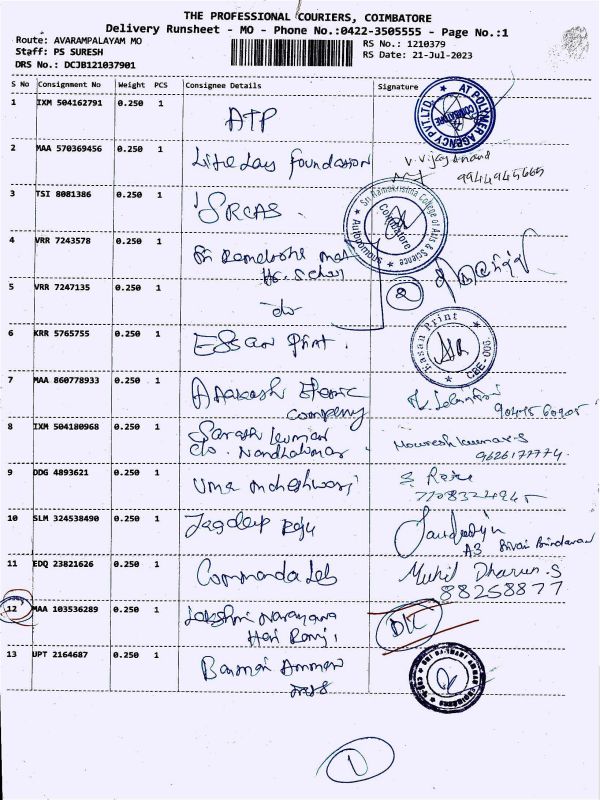 THE PROFESSIONAL COURIERS, COIMBATORE
Delivery Runsheet - MO - Phone No.:0422-3505555 - Page No.:1
Route: AVARAMPALAYAM MO
RS No.: 1210379
Staff: PS SURESH
RS Date: 21-Jul-2023
DRS No.: DCJB121037901
S No Consignment No Weight PCS Consignee Details Signature
1 IXM 504162791 0.250 1 ATP
AT POLYMER AGENCY PVT.LTD. COIMBATORE
2 MAA 570369456 0.250 1 foundation V. Vijay Anand
3 TSI 8081386 0.250 1 SRCAS
Sri Ramakrishna College of Arts & Science Autonomous Coimbatore
4 VRR 7243578 0.250 1 Sri
Hr.
5 VRR 7247135 0.250 1 do 2
6 KRR 5765755 0.250 1 Essan Print.
Eassan Print CBE-006.
7 MAA 860778933 0.250 1
company
8 IXM 504180968 0.250 1 Sarath kumar Mouresh kumar.S
c/o. Nandhakumar 9626177774.
9 DDG 4893621 0.250 1 Uma maheshwari
10 SLM 324538490 0.250 1 Jagdeep Raju
11 EDQ 23821626 0.250 1 Lab Mukil Dharun.S
88258877
12 MAA 103536289 0.250 1 Lakshmi Narayana
Hari Ramji
13 UPT 2164687 0.250 1 Bannari Amman
1